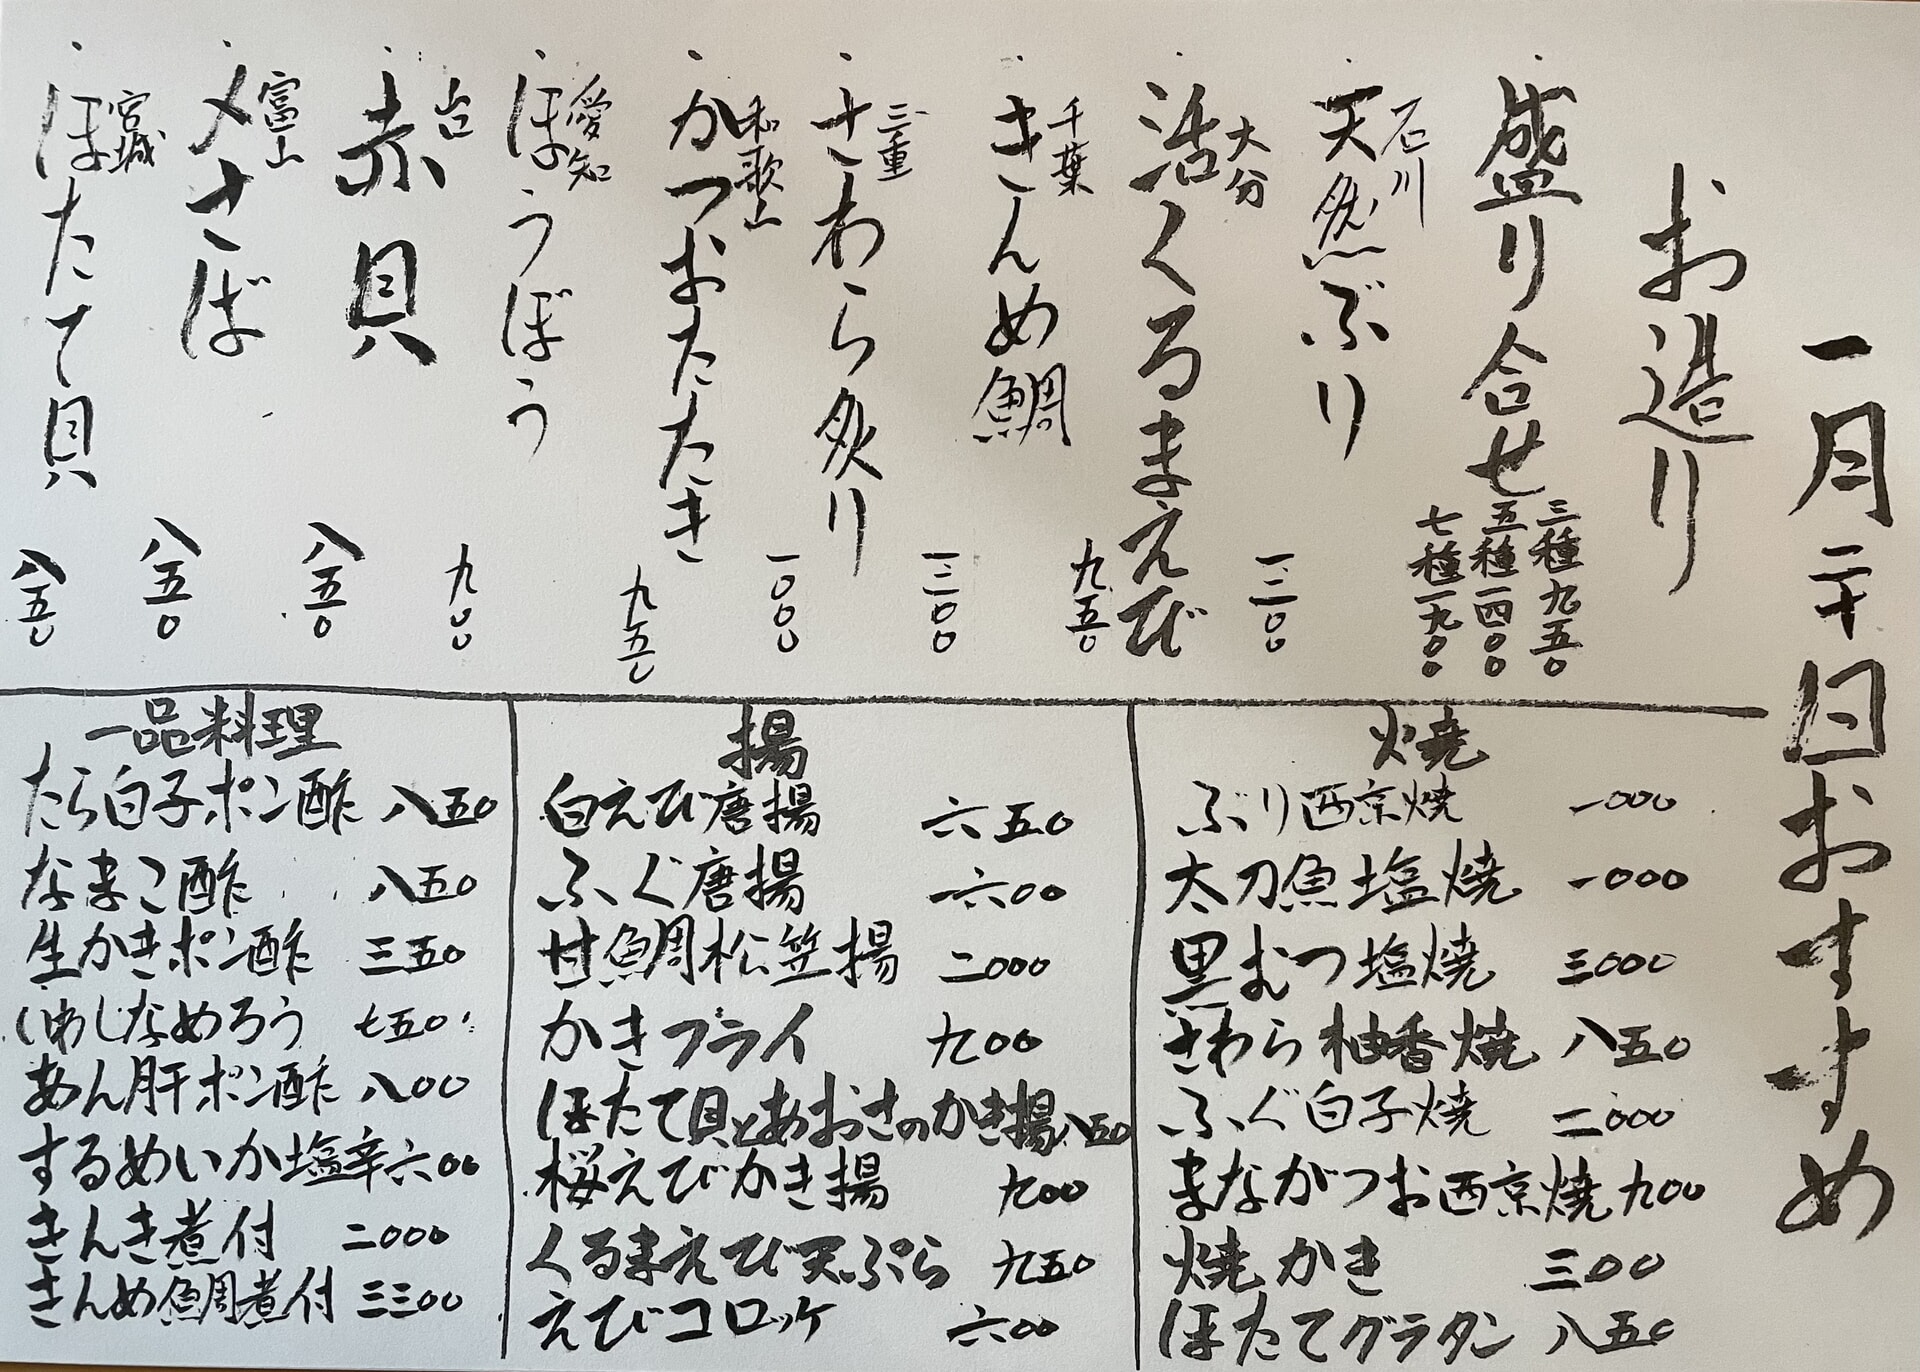 一月二十日おすすめ
お造り
盛り合せ
三種九五〇
五種一四〇〇
七種一九〇〇
石川
天然ぶり 一二〇〇
大分
活くるまえび 九五〇
千葉
きんめ鯛 一二〇〇
三重
さわら炙り 一〇〇〇
和歌山
かつおたたき 九五〇
愛知
ほうぼう 九〇〇
赤貝 八五〇
富山
〆さば 八五〇
宮城
ほたて貝 八五〇
焼
ぶり西京焼 一〇〇〇
太刀魚塩焼 一〇〇〇
黒むつ塩焼 三〇〇〇
さわら柚香焼 八五〇
ふぐ白子焼 二〇〇〇
まながつお西京焼 九〇〇
焼かき 三〇〇
ほたてグラタン 八五〇
揚
白えび唐揚 六五〇
ふぐ唐揚 一六〇〇
甘鯛松笠揚 二〇〇〇
かきフライ 九〇〇
ほたて貝とあおさのかき揚 八五〇
桜えびかき揚 九〇〇
くるまえび天ぷら 九五〇
えびコロッケ 六〇〇
一品料理
たら白子ポン酢 八五〇
なまこ酢 八五〇
生かきポン酢 三五〇
いわしなめろう 七五〇
あん肝ポン酢 八〇〇
するめいか塩辛 六〇〇
きんき煮付 二〇〇〇
きんめ鯛煮付 三三〇〇